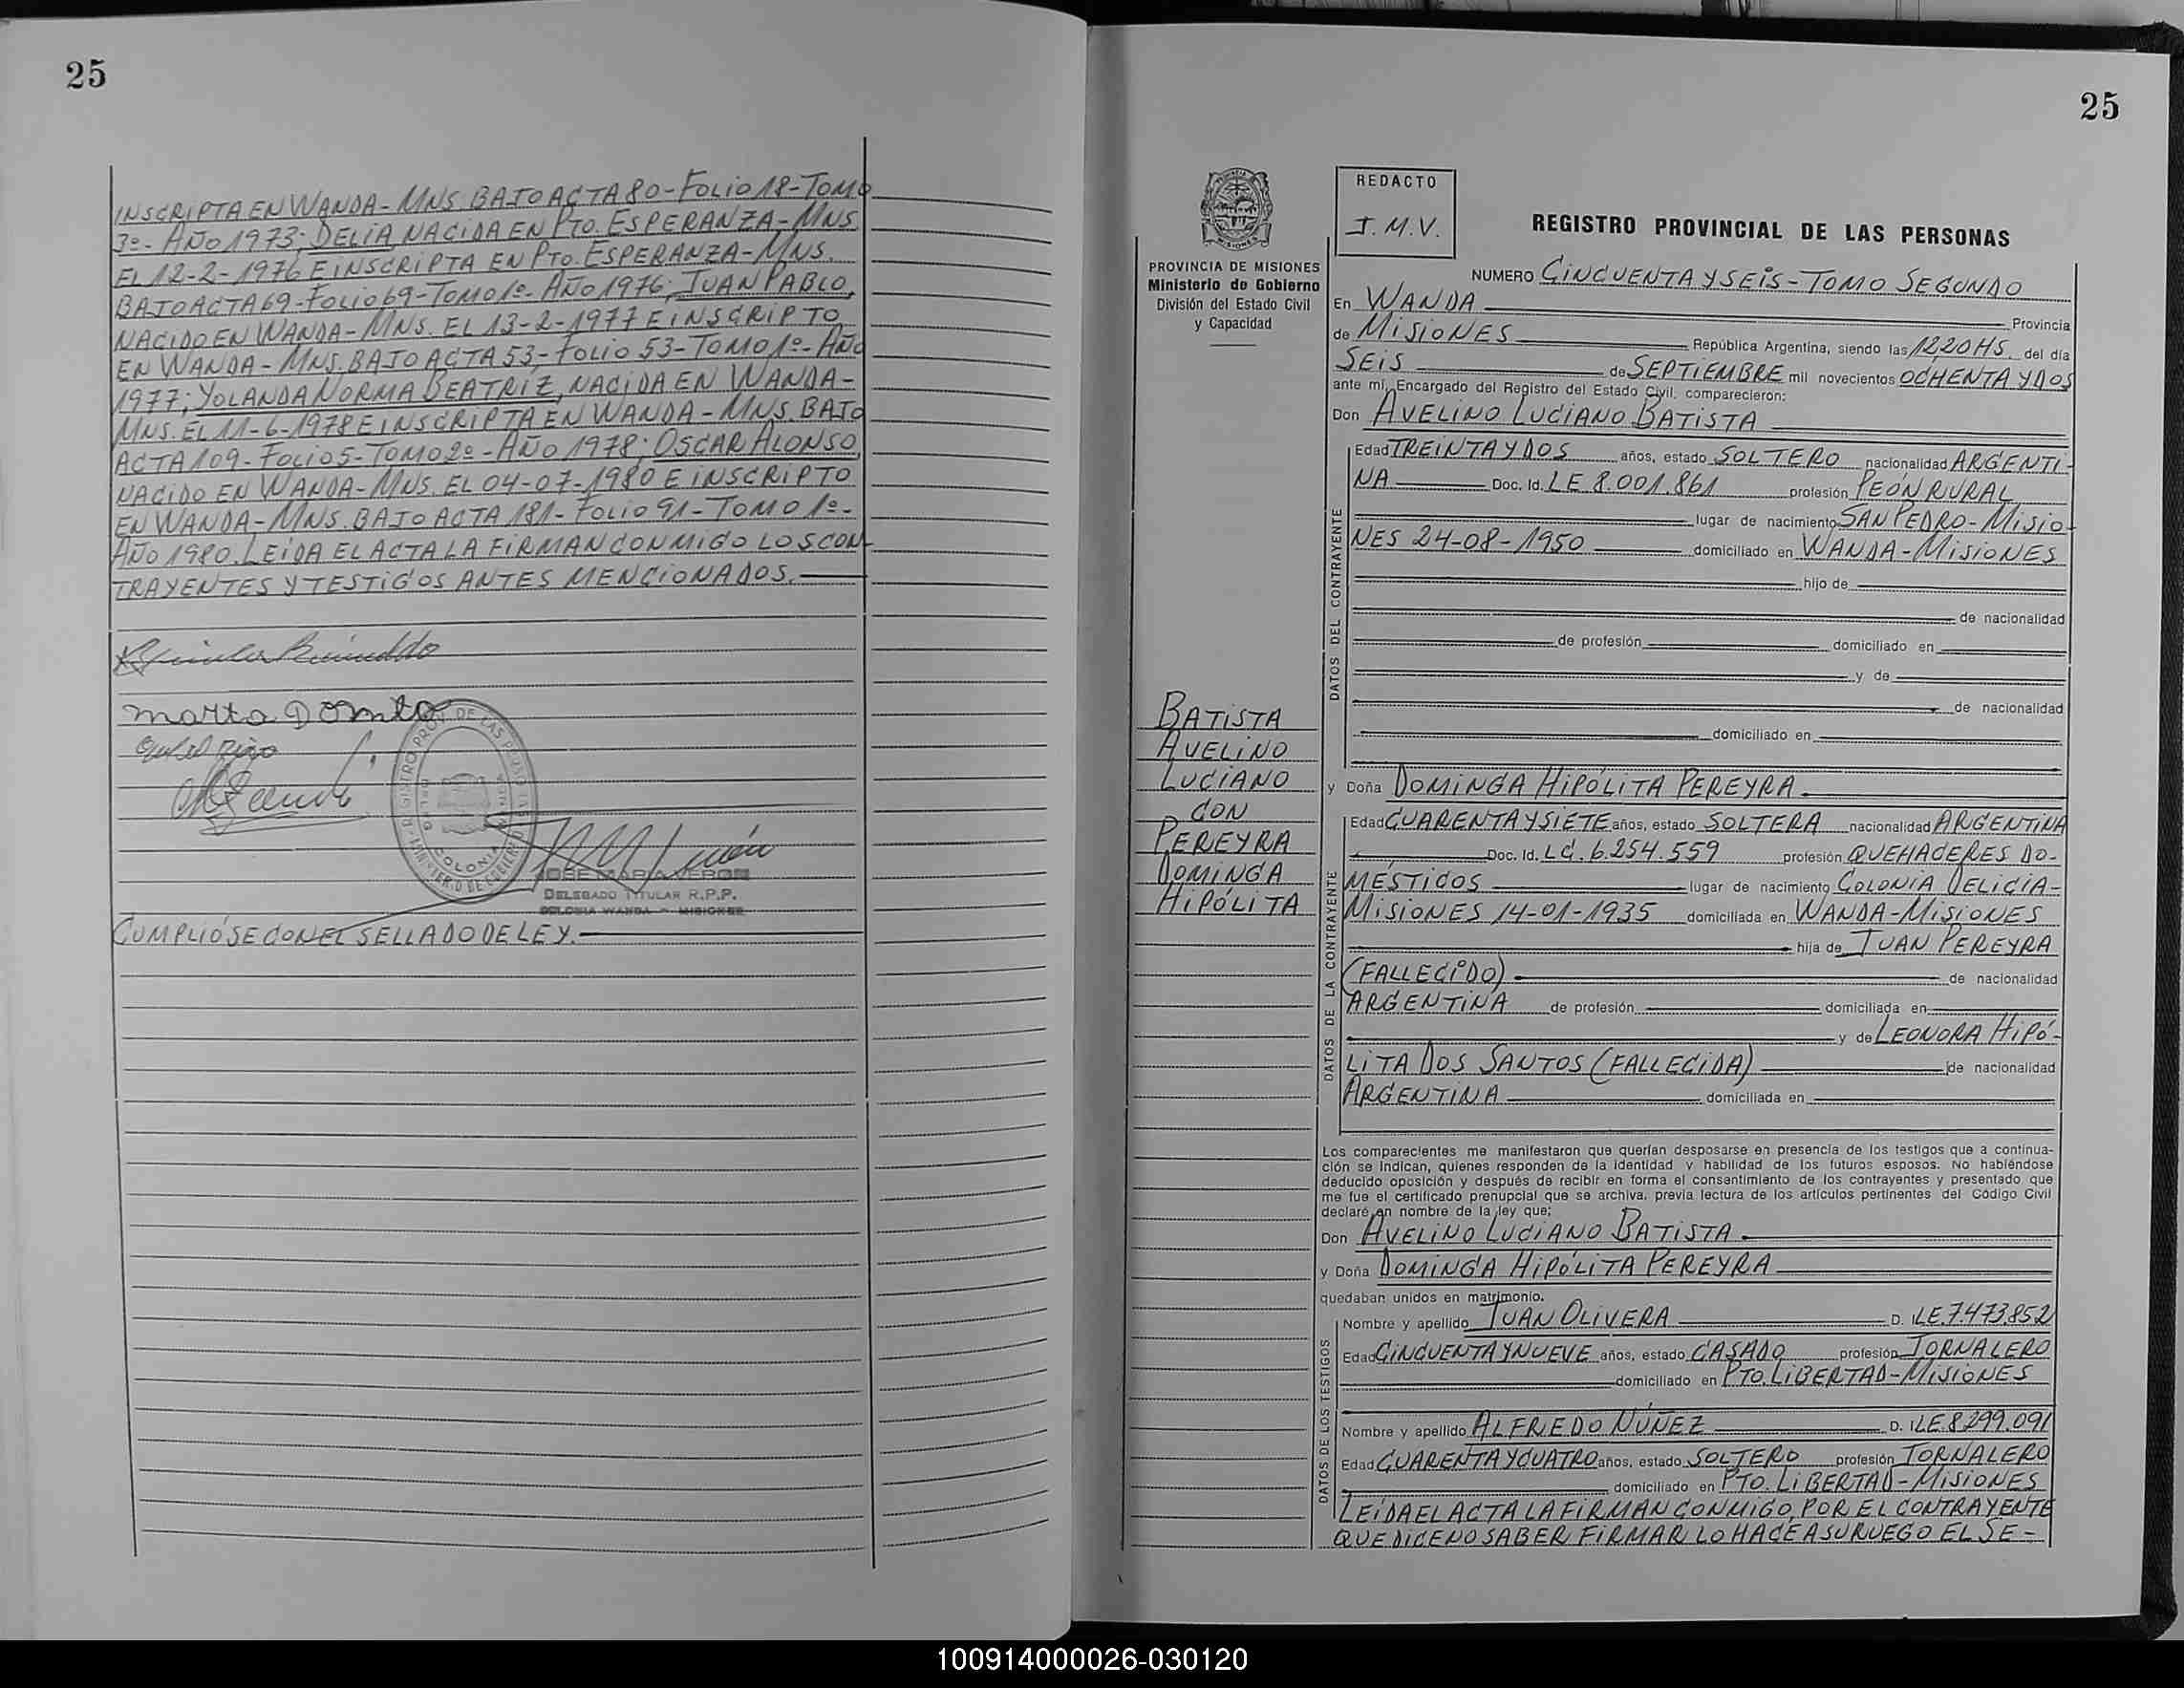 25
INSCRIPTA EN WANDA - MNS. BAJO ACTA 80 - FOLIO 18 - TOMO
3º - AÑO 1973; DELIA, NACIDA EN PTO. ESPERANZA - MNS.
EL 12-2-1976 E INSCRIPTA EN PTO. ESPERANZA - MNS.
BAJO ACTA 69 - FOLIO 69 - TOMO 1º - AÑO 1976; JUAN PABLO,
NACIDO EN WANDA - MNS. EL 13-2-1977 E INSCRIPTO
EN WANDA - MNS. BAJO ACTA 53 - FOLIO 53 - TOMO 1º - AÑO
1977; YOLANDA NORMA BEATRIZ, NACIDA EN WANDA -
MNS. EL 11-6-1978 E INSCRIPTA EN WANDA - MNS. BAJO
ACTA 109 - FOLIO 5 - TOMO 2º - AÑO 1978; OSCAR ALONSO,
NACIDO EN WANDA - MNS. EL 04-07-1980 E INSCRIPTO
EN WANDA - MNS. BAJO ACTA 181 - FOLIO 91 - TOMO 1º -
AÑO 1980. LEÍDA EL ACTA LA FIRMAN CONMIGO LOS CON
TRAYENTES Y TESTIGOS ANTES MENCIONADOS.
Marta
JOSE MARIA VERON
DELEGADO TITULAR R.P.P.
COLONIA WANDA - MISIONES
CUMPLIÓSE CON EL SELLADO DE LEY.
25
PROVINCIA DE MISIONES
Ministerio de Gobierno
División del Estado Civil
y Capacidad
REDACTO
J.M.V.
REGISTRO PROVINCIAL DE LAS PERSONAS
NUMERO CINCUENTA Y SEIS - TOMO SEGUNDO
En WANDA Provincia
de MISIONES República Argentina, siendo las 12,20 HS. del día
SEIS de SEPTIEMBRE mil novecientos OCHENTA Y DOS
ante mí, Encargado del Registro del Estado Civil, comparecieron:
Don AVELINO LUCIANO BATISTA
DATOS DEL CONTRAYENTE
Edad TREINTA Y DOS años, estado SOLTERO nacionalidad ARGENTI-
NA Doc. Id. LE 8.001.861 profesión PEÓN RURAL
lugar de nacimiento SAN PEDRO - MISIO-
NES 24-08-1950 domiciliado en WANDA - MISIONES
hijo de
de nacionalidad
de profesión domiciliado en
y de
de nacionalidad
domiciliado en
BATISTA
AVELINO
LUCIANO
CON
PEREYRA
DOMINGA
HIPÓLITA
y Doña DOMINGA HIPÓLITA PEREYRA.
DATOS DE LA CONTRAYENTE
Edad CUARENTA Y SIETE años, estado SOLTERA nacionalidad ARGENTINA
Doc. Id. LC. 6.254.559 profesión QUEHACERES DO-
MÉSTICOS lugar de nacimiento COLONIA DELICIA -
MISIONES 14-01-1935 domiciliada en WANDA - MISIONES
hija de JUAN PEREYRA
(FALLECIDO) de nacionalidad
ARGENTINA de profesión domiciliada en
y de LEONORA HIPÓ-
LITA DOS SANTOS (FALLECIDA) de nacionalidad
ARGENTINA domiciliada en
Los comparecientes me manifestaron que querían desposarse en presencia de los testigos que a continua-
ción se indican, quienes responden de la identidad y habilidad de los futuros esposos. No habiéndose
deducido oposición y después de recibir en forma el consentimiento de los contrayentes y presentado que
me fue el certificado prenupcial que se archiva, previa lectura de los artículos pertinentes del Código Civil
declaré en nombre de la ley que:
Don AVELINO LUCIANO BATISTA.
y Doña DOMINGA HIPÓLITA PEREYRA
quedaban unidos en matrimonio.
DATOS DE LOS TESTIGOS
Nombre y apellido JUAN OLIVERA D. I. LE. 7.473.852
Edad CINCUENTA Y NUEVE años, estado CASADO profesión JORNALERO
domiciliado en PTO. LIBERTAD - MISIONES
Nombre y apellido ALFREDO NÚÑEZ D. I. LE. 8.299.091
Edad CUARENTA Y CUATRO años, estado SOLTERO profesión JORNALERO
domiciliado en PTO. LIBERTAD - MISIONES
LEÍDA EL ACTA LA FIRMAN CONMIGO, POR EL CONTRAYENTE
QUE DICE NO SABER FIRMAR LO HACE A SU RUEGO EL SE-
100914000026-030120